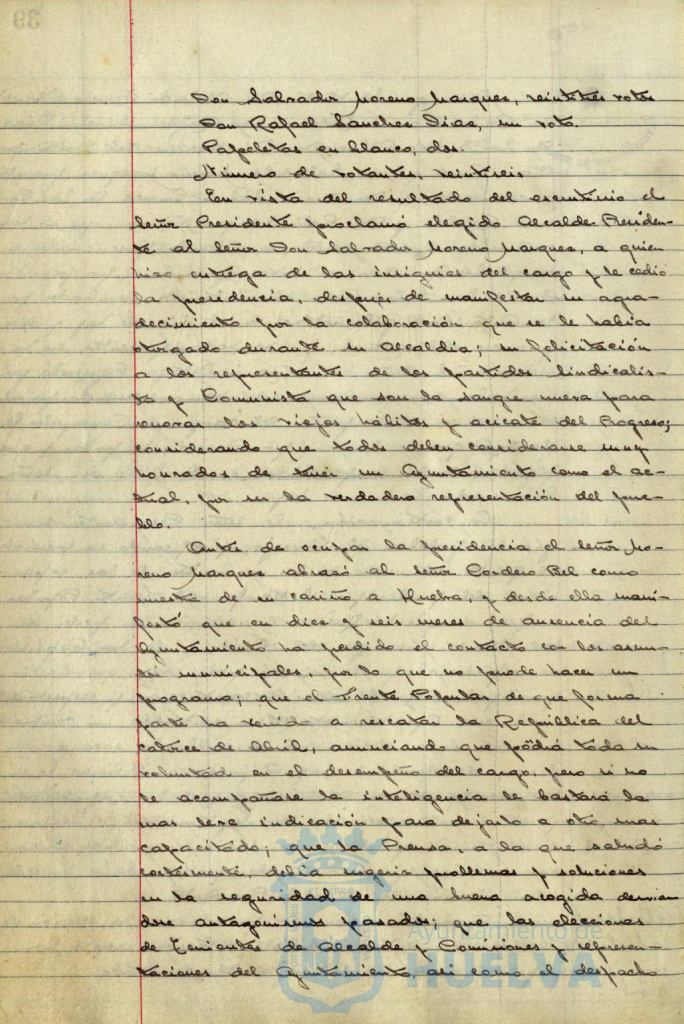 39
Don Salvador Moreno Marquez, veintitres votos
Don Rafael Sanchez Diaz, un voto.
Papeletas en blanco, dos.
Número de votantes, veintiseis
En vista del resultado del escrutinio el
Señor Presidente proclamó elegido Alcalde-Presiden-
te al Señor Don Salvador Moreno Marquez, a quien
hizo entrega de las insignias del cargo y le cedió
la presidencia, después de manifestar su agra-
decimiento por la colaboración que se le había
otorgado durante su Alcaldía; su felicitación
a los representantes de los partidos Sindicalis-
ta y Comunista que son la sangre nueva para
renovar los viejos hábitos y acicate del Progreso;
considerando que todos deben considerarse muy
honrados de tener un Ayuntamiento como el ac-
tual, por ser la verdadera representación del pue-
blo.
Antes de ocupar la presidencia el Señor Mo-
reno Marquez abrazó al Señor Cordero Bel como
muestra de su cariño a Huelva, y desde ella mani-
festó que en diez y seis meses de ausencia del
Ayuntamiento ha perdido el contacto con los asun-
tos municipales, por lo que no puede hacer un
programa; que el Frente Popular de que forma
parte ha venido a rescatar la República del
catorce de Abril, anunciando que pondrá toda su
voluntad en el desempeño del cargo, pero si no
le acompañase la inteligencia le bastará la
mas leve indicación para dejarlo a otro mas
capacitado; que la Prensa, a la que saludó
cortesmente, debía sugerir problemas y soluciones
en la seguridad de una buena acogida
dose antagonismos pasados; que las elecciones
de Tenientes de Alcalde y Comisiones y represen-
taciones del Ayuntamiento, asi como el despacho
Ayuntamiento de
HUELVA